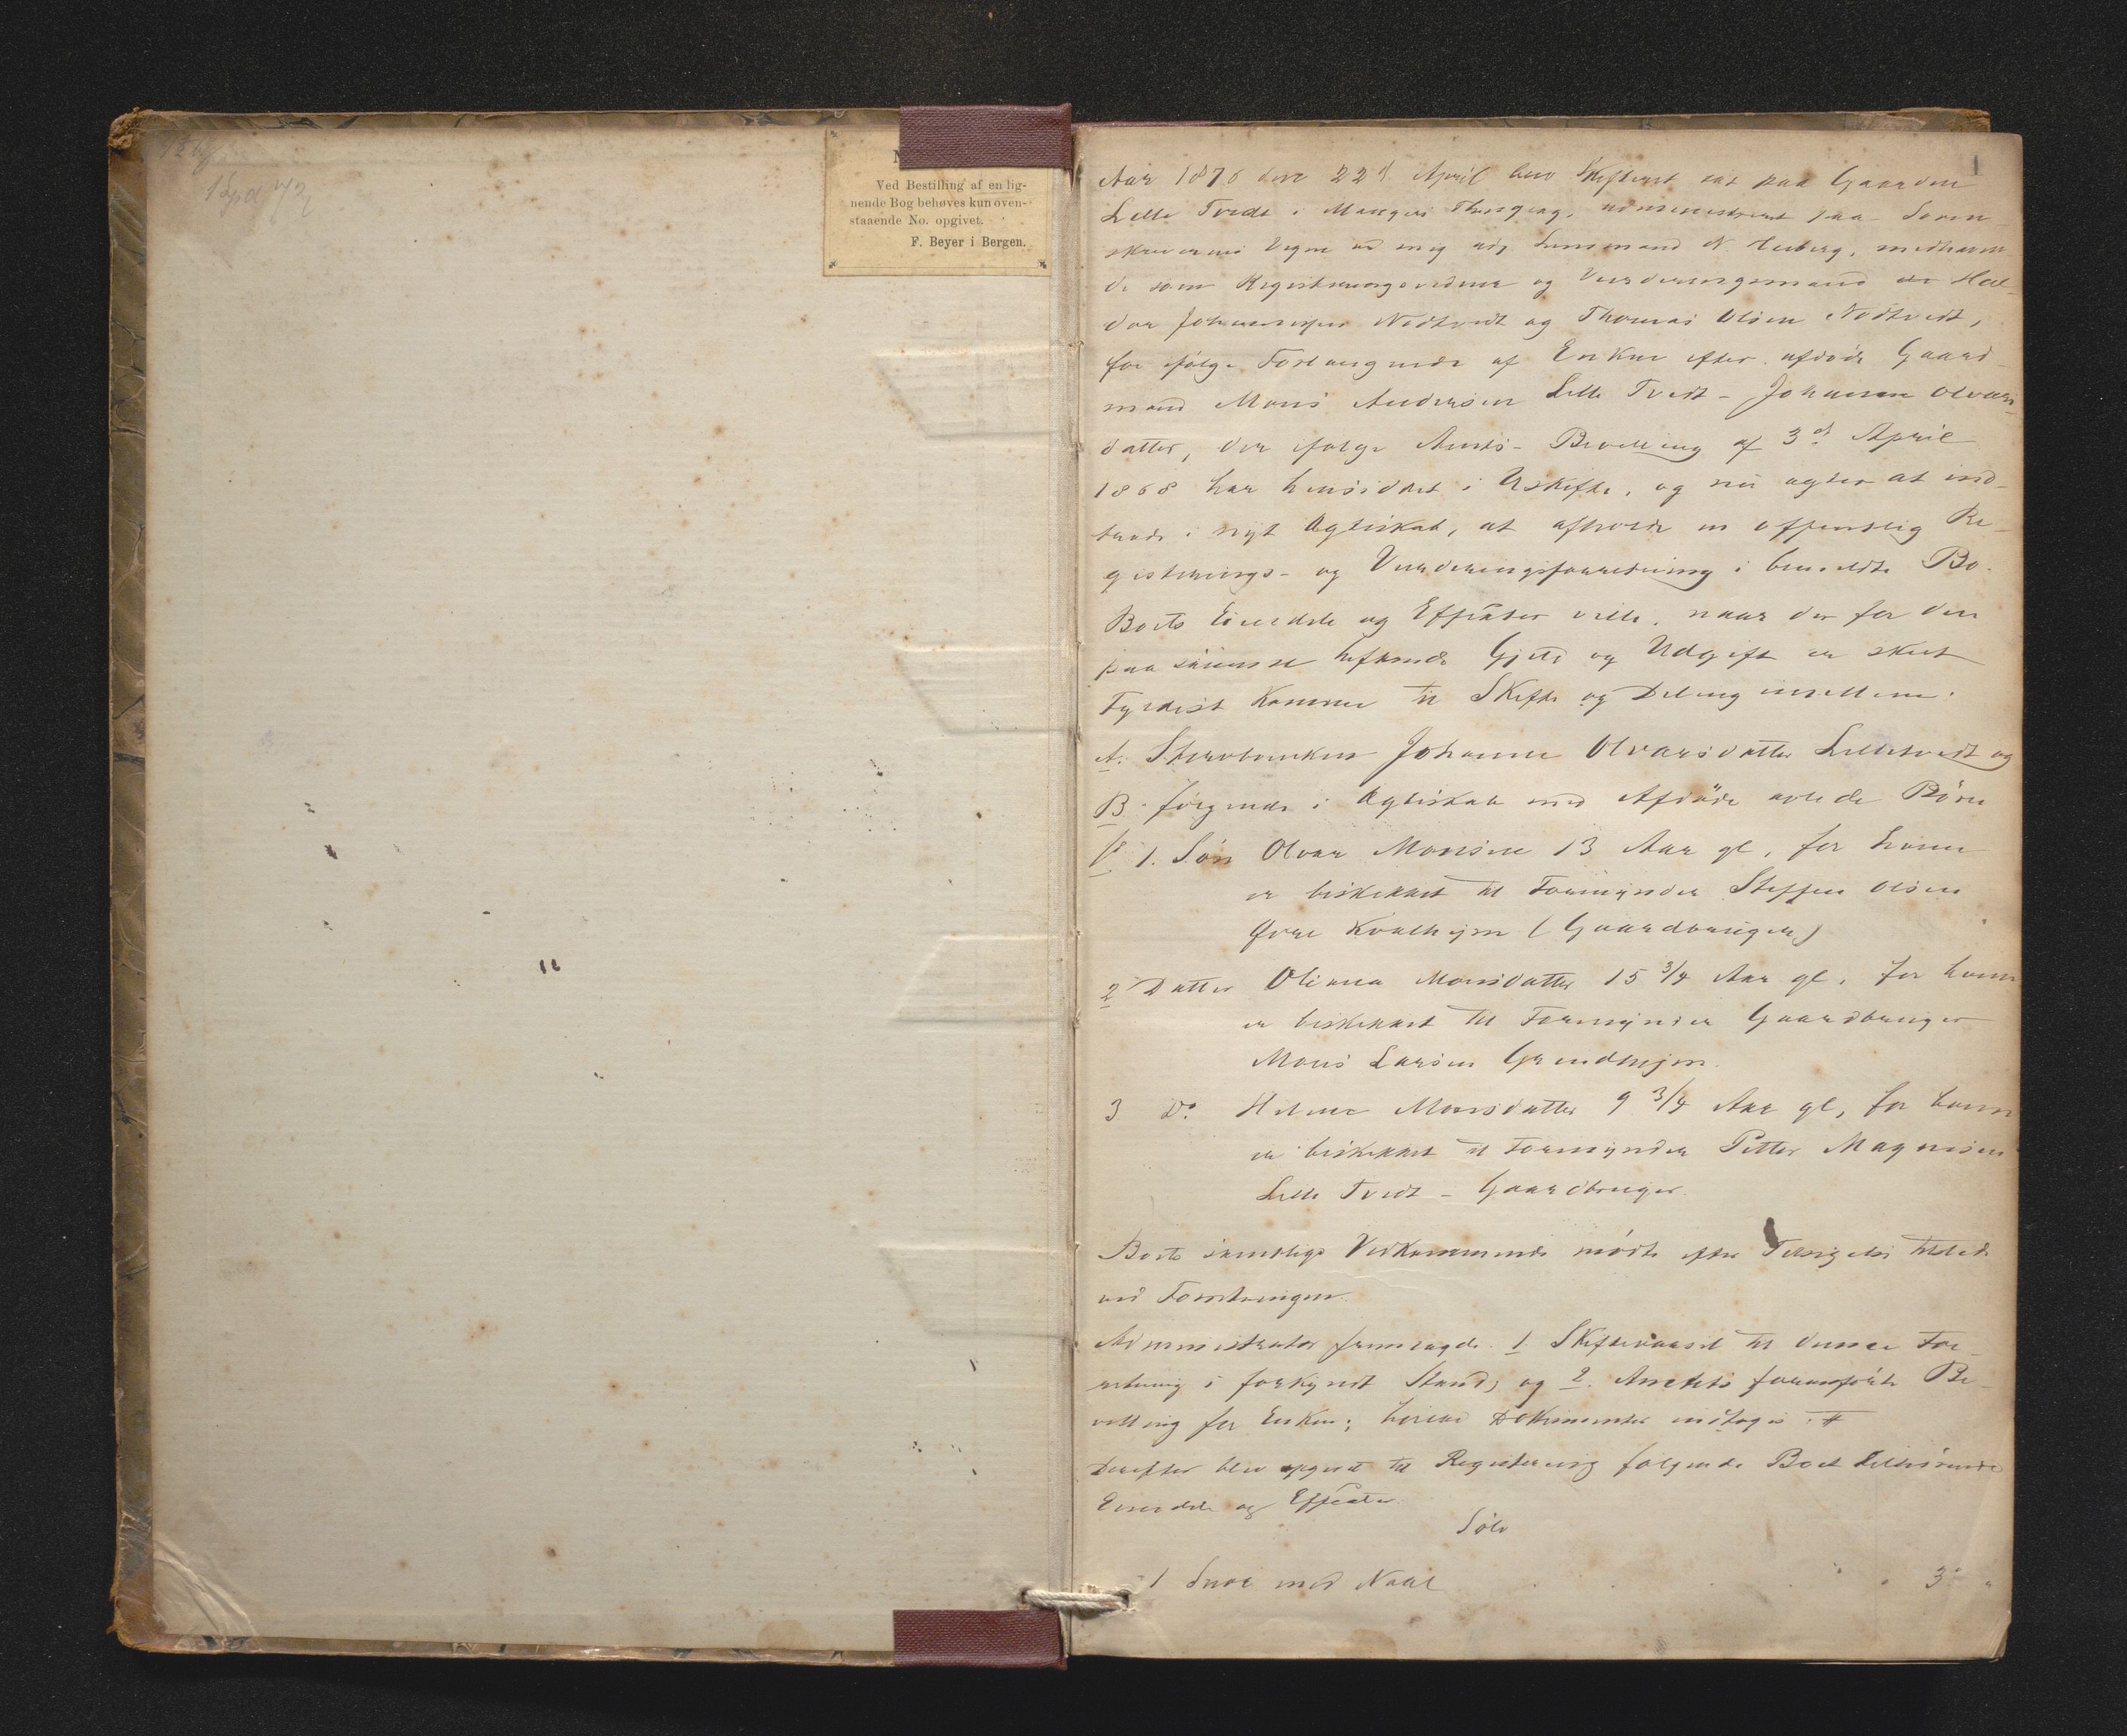 1 Spd 72
Ved Bestilling af en lig-
nende Bog behøves kun oven-
staaende No. opgivet.
F. Beyer i Bergen.
1
Aar 1876 den 22d April blev Skifteret sat paa Gaarden
Lille Tvedt i Mangers Thinglag, administreret paa Soren-
skriverens Vegne af mig Lensmand N. medhavn-
de som Registreringsvidner og Vurderingsmænd Hal-
dor Johannessen Nodtvedt og Thomas Olsen Nodtvedt,
for ifølge Forlangende af Enken efter afdøde Gaard-
mand Mons Andersen Lille Tvedt - Johanne Olvars-
datter, der ifølge Amts-Bevilling af 3d April
1868 har hensiddet i Uskifte, og nu agter at ind-
træde i nyt Ægteskab, at afholde en offentlig Re-
gistrerings- og Vurderingsforretning i bemeldte Bo.
Boets Eiendele og Effecter ville, naar der for den
paa samme heftende Gjeld og Udgift er skeet
Fyldest komme til Skifte og Deling imellem:
A. Sterboenken Johanne Olvarsdatter Lilletvedt og
B. følgende i Ægteskab med Afdøde avlede Børn
1. Søn Olvar Monsen 13 Aar gl, for ham
er beskikket til Formynder Steffen Olsen
Øvre Kvalheim (Gaardbruger)
2 Datter Oliana Monsdatter 15 3/4 Aar gl, for hende
er beskikket til Formynder Gaardbruger
Mons Larsen Grindheim.
3 Do. Helene Monsdatter 9 3/4 Aar gl, for hende
er beskikket til Formynder Petter Magnesen
Lille Tvedt - Gaardbruger.
Boets samtlige Vedkommende mødte efter Tilsigelse tilstede
ved Forretningen.
Administrator fremlagde 1 Skiftevarsel til denne For-
retning i forkyndt Stand, og 2. Amtets foranførte Be-
villing for Enken; hvilke Dokumenter indtages #
Derefter blev opgivet til Registrering følgende Boet tilhørende
Eiendele og Effecter.
Sølv
1 Snor med Naal . . . . . 3 "